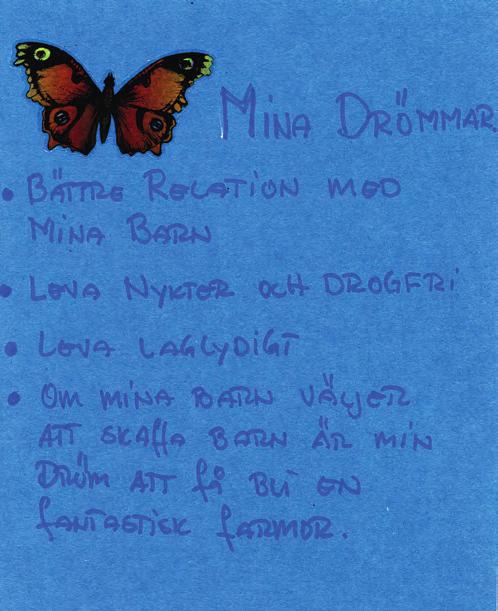 MINA DRÖMMAR
• BÄTTRE RELATION MED
MINA BARN
• LEVA NYKTER OCH DROGFRI
• LEVA LAGLYDIGT
• OM MINA BARN VÄLJER
ATT SKAFFA BARN ÄR MIN
DRÖM ATT FÅ BLI EN
FANTASTISK FARMOR.